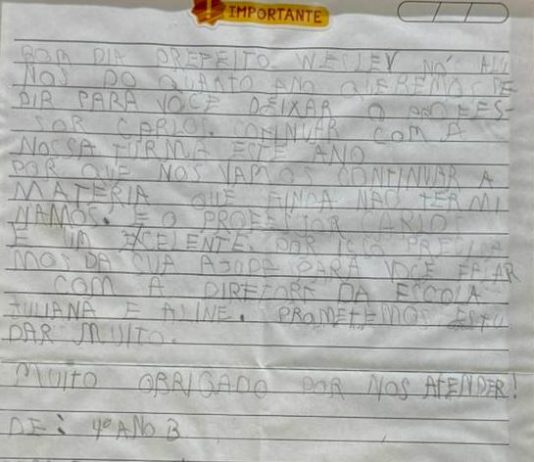 IMPORTANTE
BOM DIA PREFEITO WESLEY NÓS ALU
NOS DO QUARTO ANO QUEREMOS PE
DIR PARA VOCE DEIXAR O PROFES-
SOR CARLOS CONTINUAR COM A
NOSSA TURMA ESTE ANO
POR QUE NOS VAMOS CONTINUAR A
MATERIA QUE AINDA NÃO TERMI
NAMOS. E O PROFESSOR CARLOS
E UM EXCELENTE. POR ISSO PRECISA
MOS DA SUA AJUDA PARA VOCE FALAR
COM A DIRETORA DA ESCOLA
JULIANA E ALINE. PROMETEMOS ESTU
DAR MUITO.
MUITO OBRIGADO POR NOS ATENDER!
DE: 4º ANO B